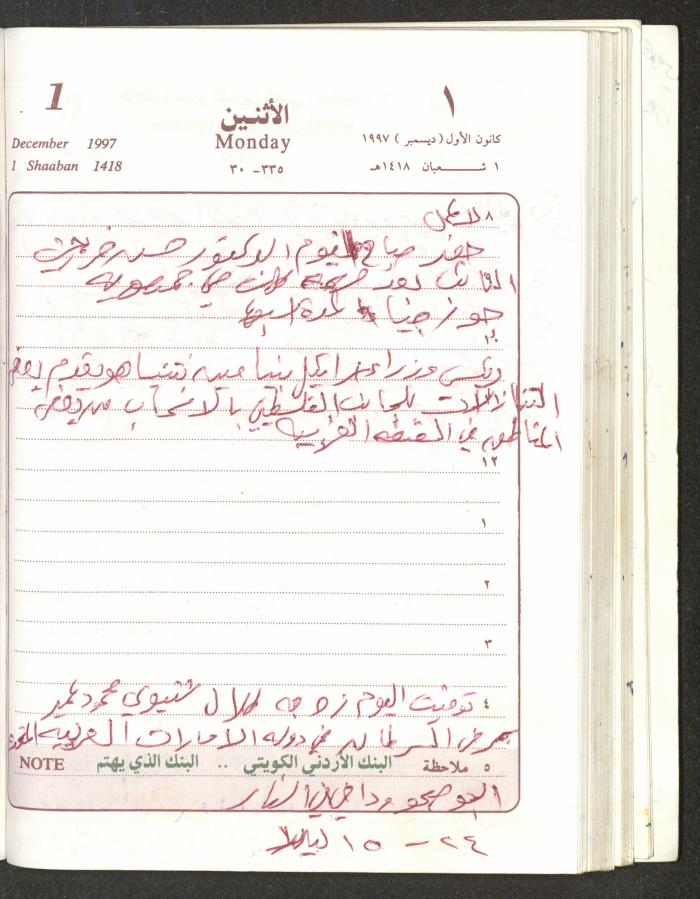 1
December 1997
1 Shaaban 1418
الأثنين
Monday
٣٣٥-٣٠
١
كانون الأول (ديسمبر) ١٩٩٧
١ شعبان ١٤١٨هـ
٨ لا عمل
حضر صباح اليوم الدكتور حسن خريشه
النائب بعد كانت في جمهورية
لمدة اسبوع
رئيس وزراء اسرائيل بنيامين نتنياهو يقدم بعض
التنازلات للجانب الفلسطيني بالانسحاب من بعض
المناطق في الضفة الغربية
١٢
١
٢
٣
٤ توفيت اليوم زوجة طلال شتيوي محمود
بمرض السرطان في دولة الامارات العربية المتحدة
٥ ملاحظة البنك الأردني الكويتي .. البنك الذي يهتم NOTE
الجو صحو ودافئ في النهار
٢٤ - ١٥ ليلا